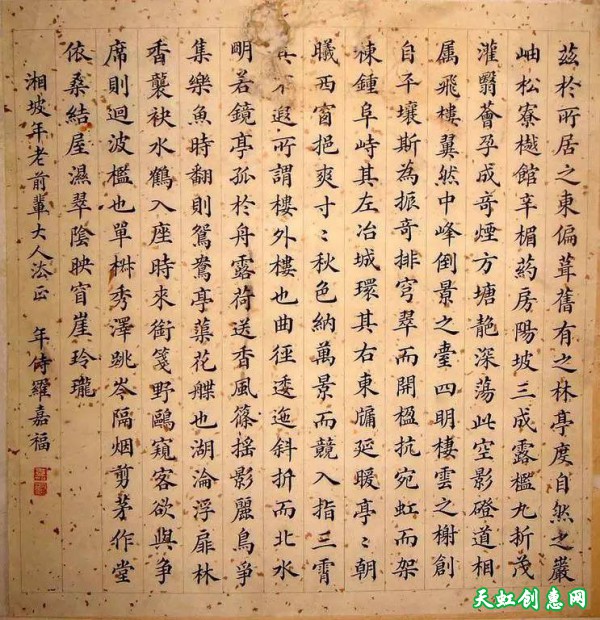 茲於所居之東偏葺舊有之林亭度自然之巖
岫松寮樾館辛楣葯房陽坡三成露檻九折茂
灌翳薈孕成奇煙方塘靘深蕩此空影磴道相
屬飛樓翼然中峰倒景之臺四明棲雲之榭創
自平壤斯為振奇排穹翠而開楹抗宛虹而架
棟鍾阜峙其左冶城環其右東牖延暖亭〻朝
曦西窗挹爽寸〻秋色納萬景而競入指三霄
其不遐所謂樓外樓也曲徑逶迤斜折而北水
明若鏡亭孤於舟露荷送香風篠搖影麗鳥爭
集樂魚時翻則鴛鴦亭蕖花艓也湖淪浮扉林
香襲袂水鶴入座時來銜箋野鷗窺客欲與爭
席則迴波檻也單椒秀澤跳岑隔烟剪茅作堂
依桑結屋濕翠陰映窗崖玲瓏
湘坡年老前輩大人法正 年侍羅嘉福
天虹创惠网